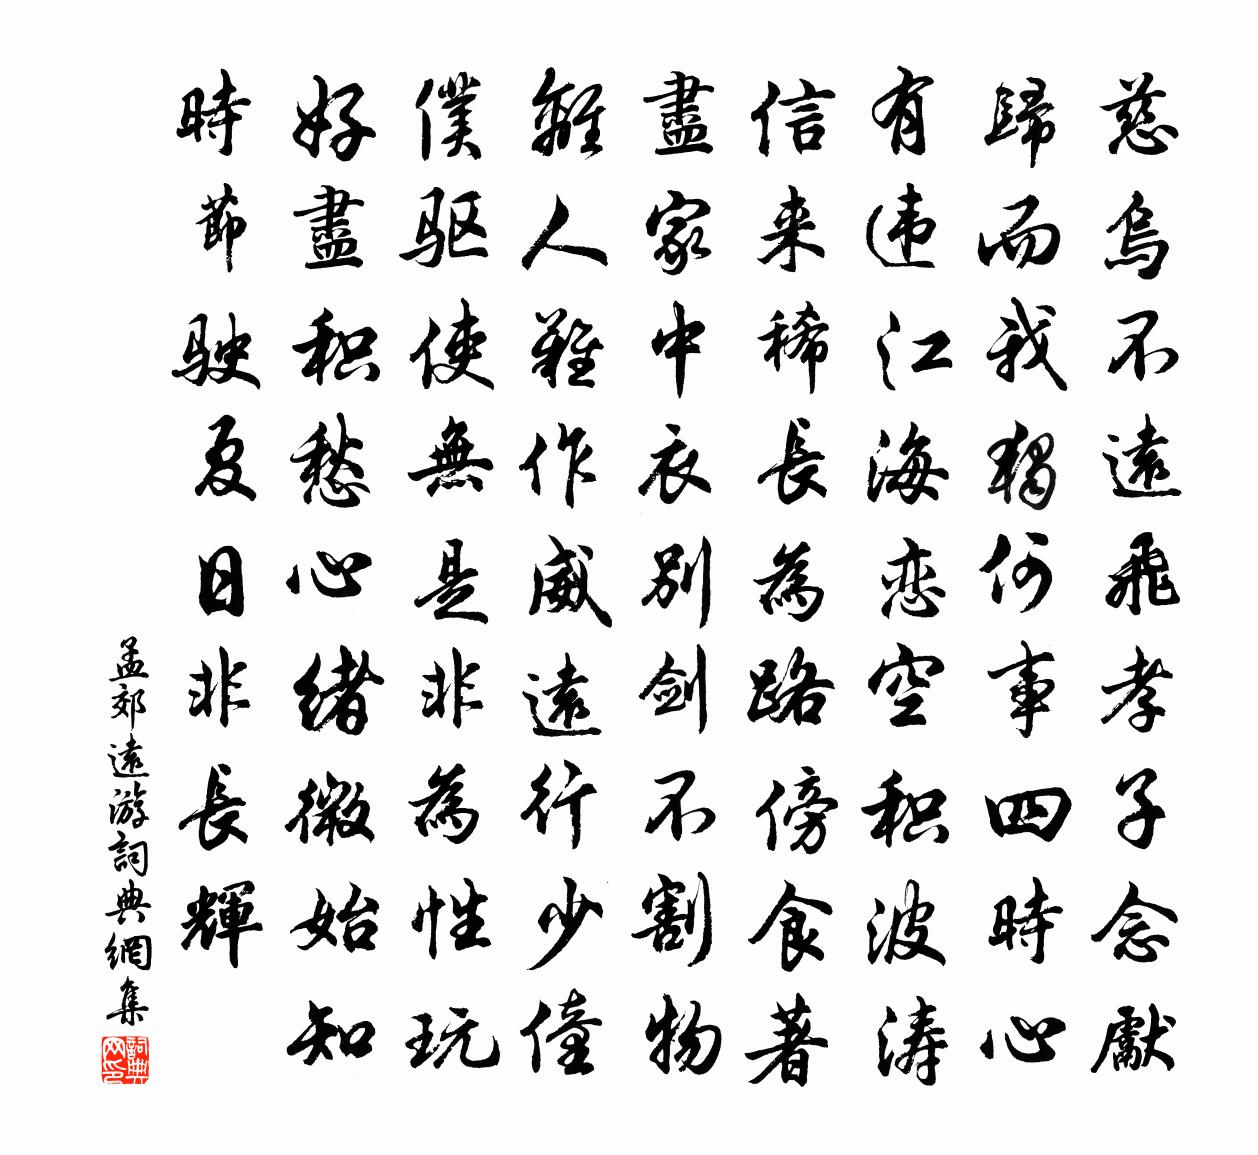 慈烏不遠飛孝子念獻
歸而我獨何事四時心
有违江海恋空积波涛
信来稀長為路傍食著
盡家中衣别剑不割物
離人難作威遠行少僮
僕驱使無是非為性玩
好盡积愁心緒微始知
時節駛夏日非長輝
孟郊遠游詞典網集
詞典网印